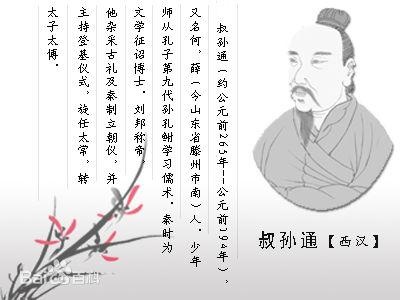 叔孙通(约公元前263年--公元前194年),
又名何,薛(今山东省滕州市南)人,少年
师从孔子第九代孙孔鲋学习儒术。秦时为
文学征诏博士。刘邦称帝
他杂采古礼及秦制立朝仪,并
主持登基仪式。旋任太常,转
太子太傅。
叔孙通【西汉】
Bai百科